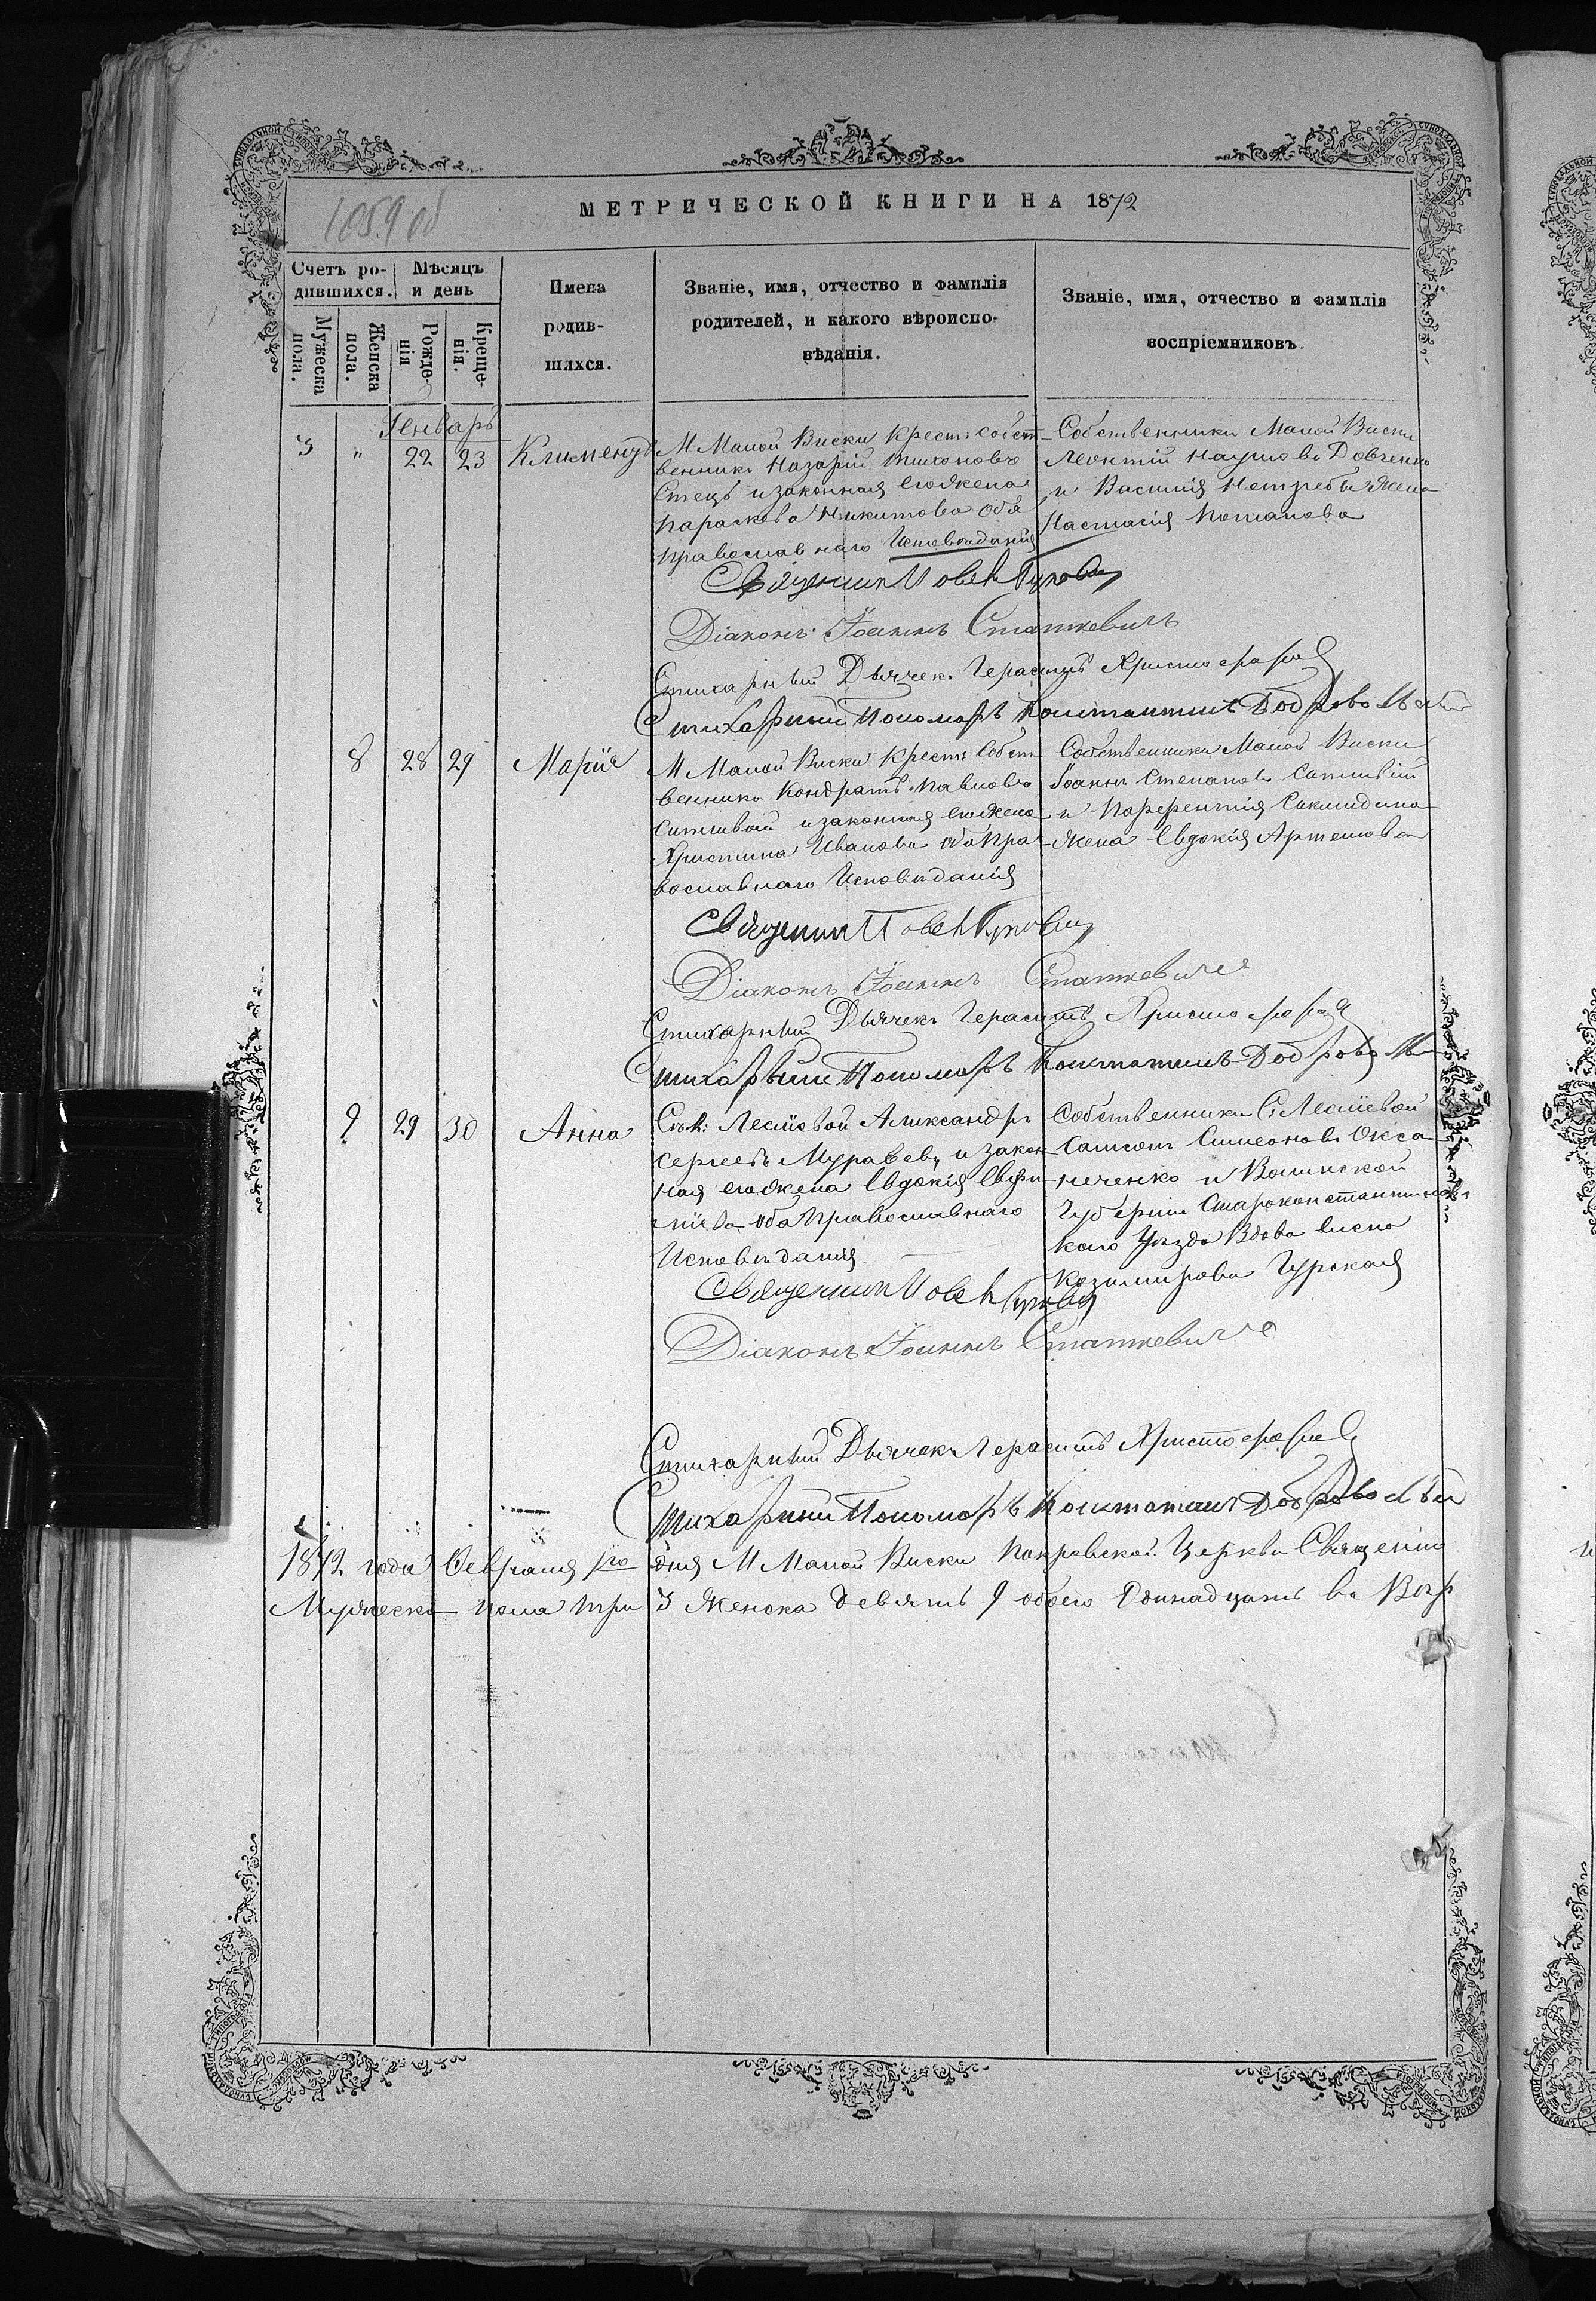 1059 об
МЕТРИЧЕСКОЙ КНИГИ НА 1872
Счетъ ро-
дившихся.
Мѣсяцъ
и день
Имена
родив-
шихся.
Званіе, имя, отчество и фамилія
родителей, и какого вѣроиспо-
вѣданія.
Званіе, имя, отчество и фамилія
воспріемниковъ.
Мужеска
пола.
Женска
пола.
Рожде-
нія
Креще-
нія.
Генварь
3 " 22 23 Климентъ
М Малой Виски Крест: собст
венникъ Назарій Тихоновъ
и законная его жена
Параскева Никитова оба
православнаго Исповѣданія
Собственники Малой Виски
Леонтій Наумовъ Довженко
и Василія Нетребы жена
Настасія Потапова
Священник
Діаконъ Іоаннъ Статкевичъ
Стихарный Дьячекъ Герасимъ Христофоров
Стихарный Пономарь Константинъ Добровольскій
8 28 29 Марія
М Малой Виски Крест: Собст
венникъ Кондратъ Павловъ
Ситливый и законная его жена
Христина Иванова оба Пра-
вославнаго Исповѣданія
Собственники Малой Виски
Іоаннъ Степановъ Ситливій
и Парфентія
жена Евдокія Артемова
Священник
Діаконъ Іоаннъ Статкевичъ
Стихарный Дьячекъ Герасимъ Христофоров
Стихарный Пономарь Константинъ Добровол
9 29 30 Анна
Александръ
Сергеевъ Муравьевъ и закон
ная его жена Евдокія
оба Православнаго
Исповѣданія
Собственники С.
Самсонъ Симеоновъ Окса-
ниченко и Волинской
Губерніи Староконстантинов
кого Уѣзда Вдова Елена
Козимирова Гурская
Священник
Діаконъ Іоаннъ Статкевичъ
Стихарный Дьячекъ Герасимъ Христофоров
Стихарный Пономарь Константинъ Добровольс
1872 года Февраля 1го дня М Малой Виски Покровской Церкви Священно
Мужеска пола три 3 Женска девять 9 обоего